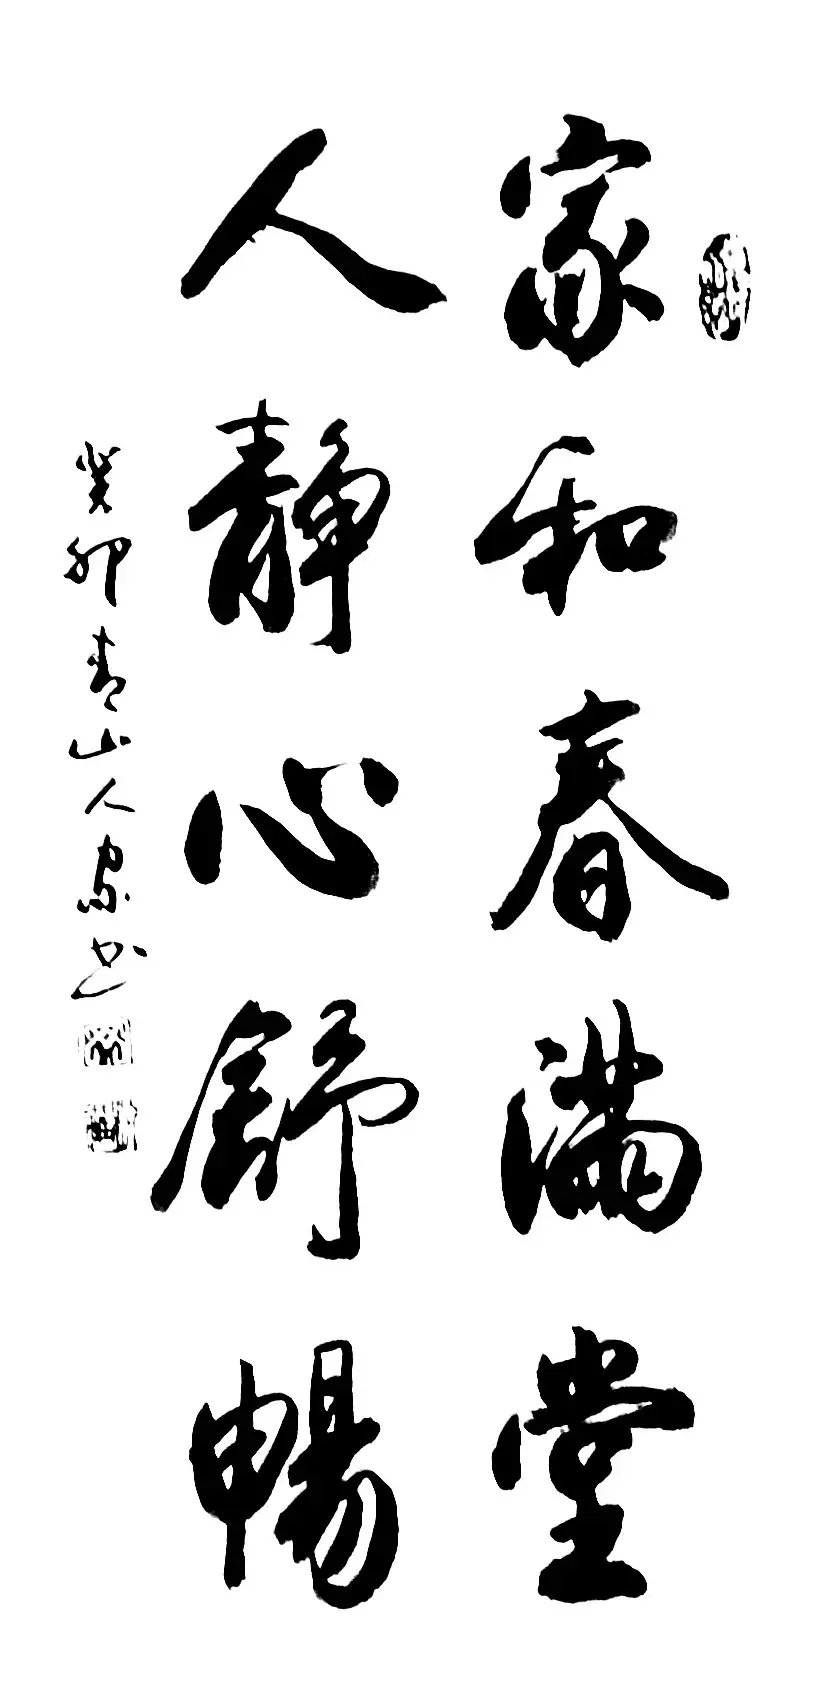 家和春滿堂
人靜心舒暢
癸卯青山人家书